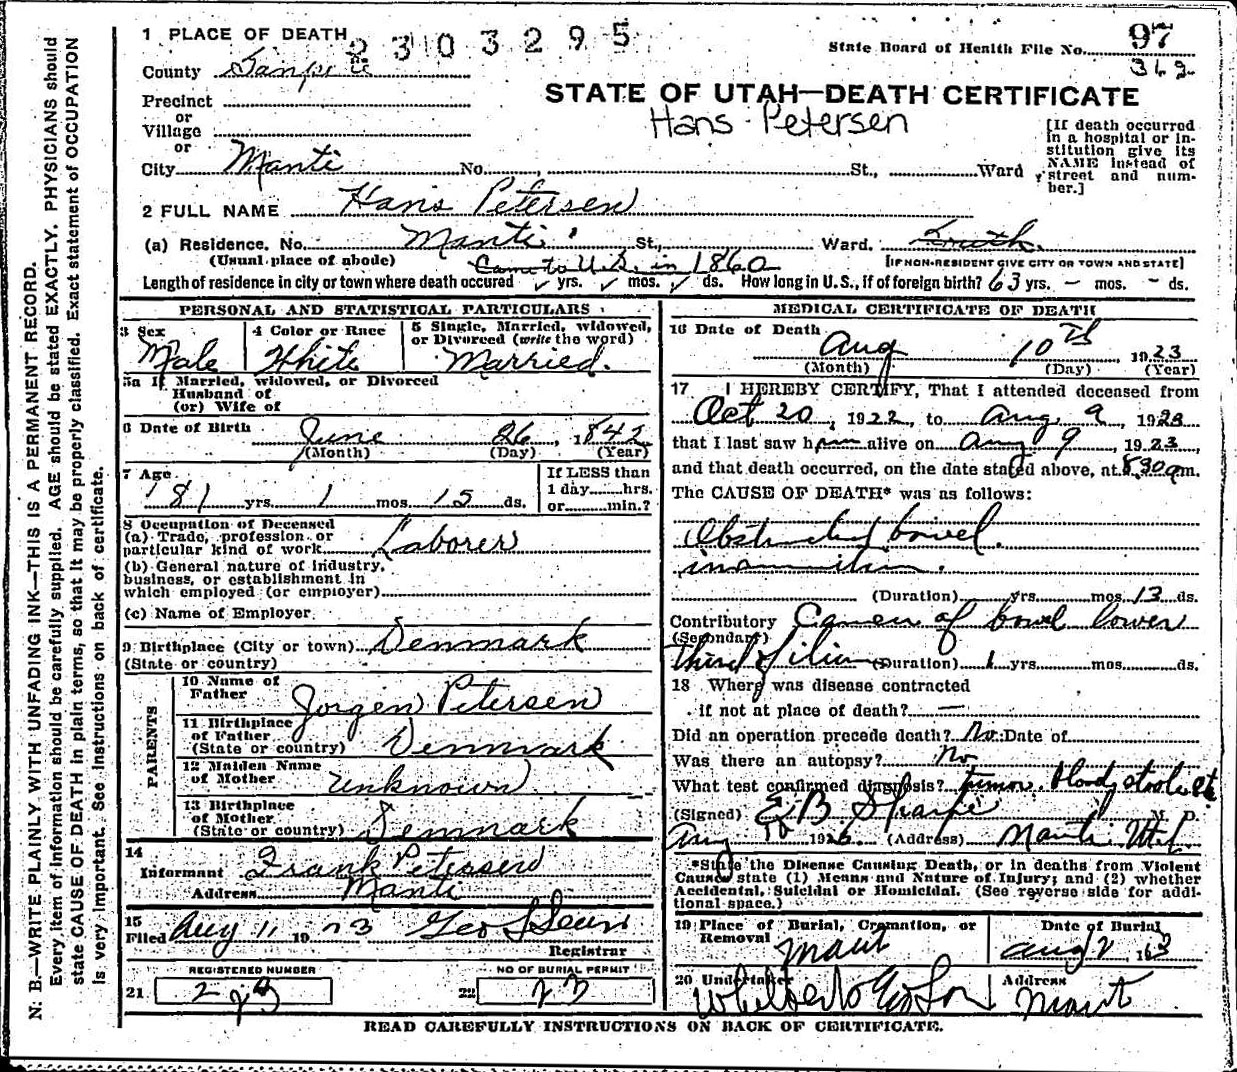 1 PLACE OF DEATH 2303295
State Board of Health File No. 97
County Sanpete
Precinct
or
Village
or
STATE OF UTAH—DEATH CERTIFICATE
Hans Petersen
[If death occurred in a hospital or institution give its NAME instead of street and number.]
City Manti No. St., Ward
2 FULL NAME Hans Petersen
(a) Residence. No. Manti St., Ward. South
(Usual place of abode) Came to U.S. in 1860 [IF NON-RESIDENT GIVE CITY OR TOWN AND STATE]
Length of residence in city or town where death occured yrs. mos. ds. How long in U.S., if of foreign birth? 63 yrs. – mos. – ds.
PERSONAL AND STATISTICAL PARTICULARS
3 Sex Male
4 Color or Race White
5 Single, Married, widowed, or Divorced (write the word) Married.
5a If Married, widowed, or Divorced
Husband of
(or) Wife of
6 Date of Birth June 26, 1842
(Month) (Day) (Year)
7 Age 81 yrs. 1 mos. 15 ds.
If LESS than
1 day......hrs.
or......min.?
8 Occupation of Deceased
(a) Trade, profession or
particular kind of work Laborer
(b) General nature of industry,
business, or establishment in
which employed (or employer)
(c) Name of Employer
9 Birthplace (City or town) Denmark
(State or country)
PARENTS
10 Name of
Father Jorgen Petersen
11 Birthplace
of Father
(State or country) Denmark
12 Maiden Name
of Mother Unknown
13 Birthplace
of Mother
(State or country) Denmark
14
Informant Frank Petersen
Address Manti
15
Filed Aug 11 1923 Geo
Registrar
REGISTERED NUMBER
21
NO OF BURIAL PERMIT
22 23
MEDICAL CERTIFICATE OF DEATH
16 Date of Death Aug 10th 1923
(Month) (Day) (Year)
17 I HEREBY CERTIFY, That I attended deceased from
Oct 20, 1922, to Aug 9, 1923
that I last saw him alive on Aug 9, 1923
and that death occurred, on the date stated above, at 8.30 a m.
The CAUSE OF DEATH* was as follows:
Obstructed bowel.
inanition.
(Duration) yrs. mos. 13 ds.
Contributory Cancer of bowel lower
(Secondary)
third of ilium (Duration) 1 yrs. mos. ds.
18 Where was disease contracted
if not at place of death? —
Did an operation precede death? No. Date of
Was there an autopsy? No
What test confirmed diagnosis? tumor. bloody stools etc
(Signed) E B M. D.
Aug 10 1923 (Address) Manti Utah
*State the Disease Causing Death, or in deaths from Violent
Causes state (1) Means and Nature of Injury; and (2) whether
Accidental, Suicidal or Homicidal. (See reverse side for addi-
tional space.)
19 Place of Burial, Cremation, or
Removal Manti
Date of Burial
20 Undertaker
Address Manti
READ CAREFULLY INSTRUCTIONS ON BACK OF CERTIFICATE.
N. B.—WRITE PLAINLY WITH UNFADING INK—THIS IS A PERMANENT RECORD.
Every item of information should be carefully supplied. AGE should be stated EXACTLY. PHYSICIANS should
state CAUSE OF DEATH in plain terms, so that it may be properly classified. Exact statement of OCCUPATION
is very important. See instructions on back of certificate.